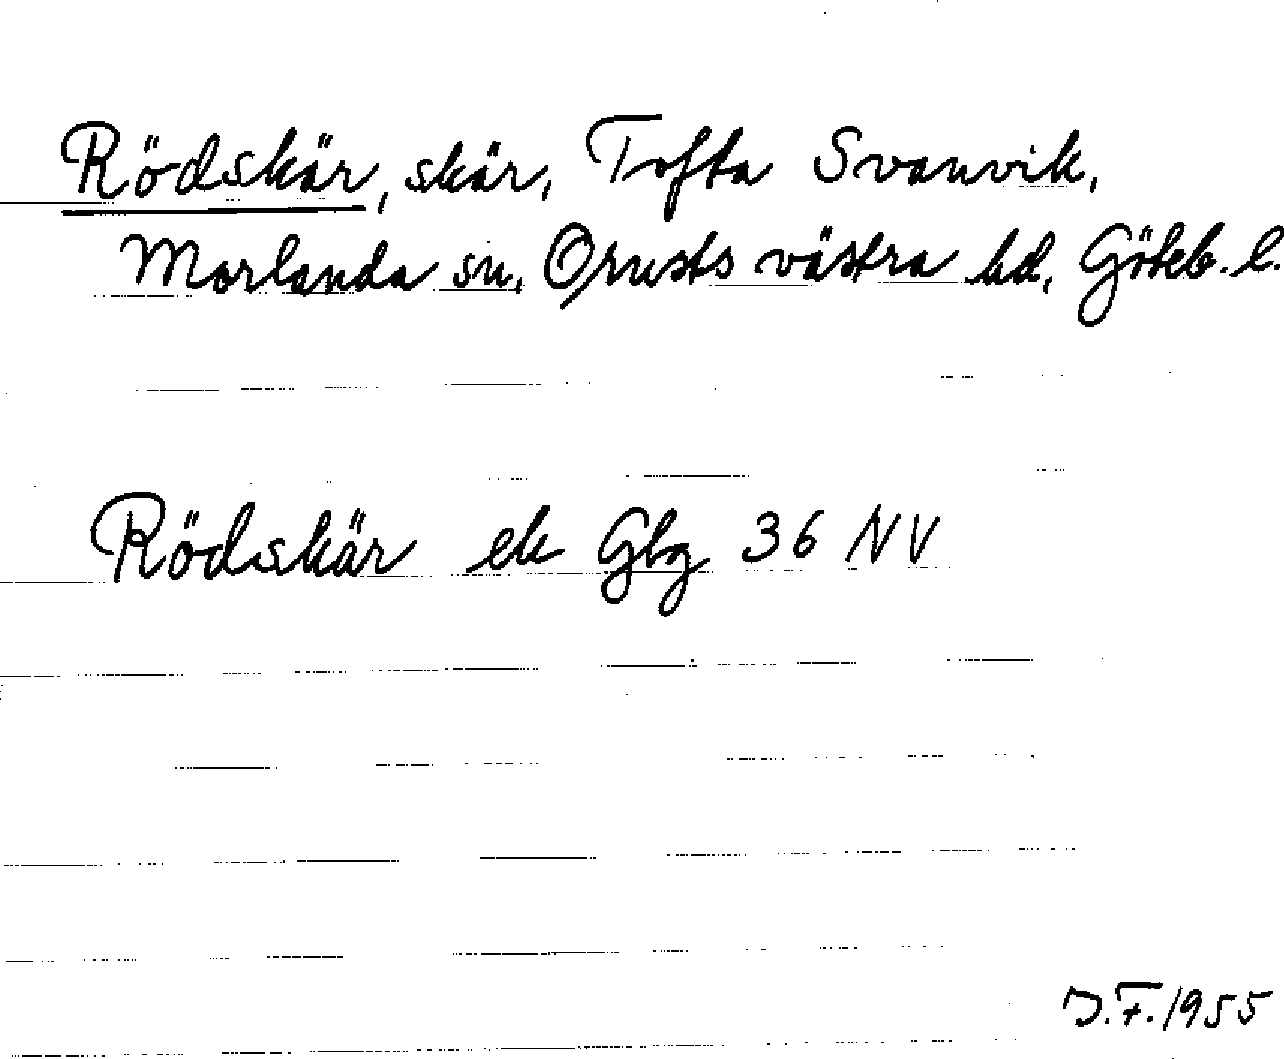 Rödskär, skär, Tofta Svanvik,
Morlanda sn, Orusts västra hd, Göteb. l.
Rödskär ek Gbg 36 NV
J.F. 1955